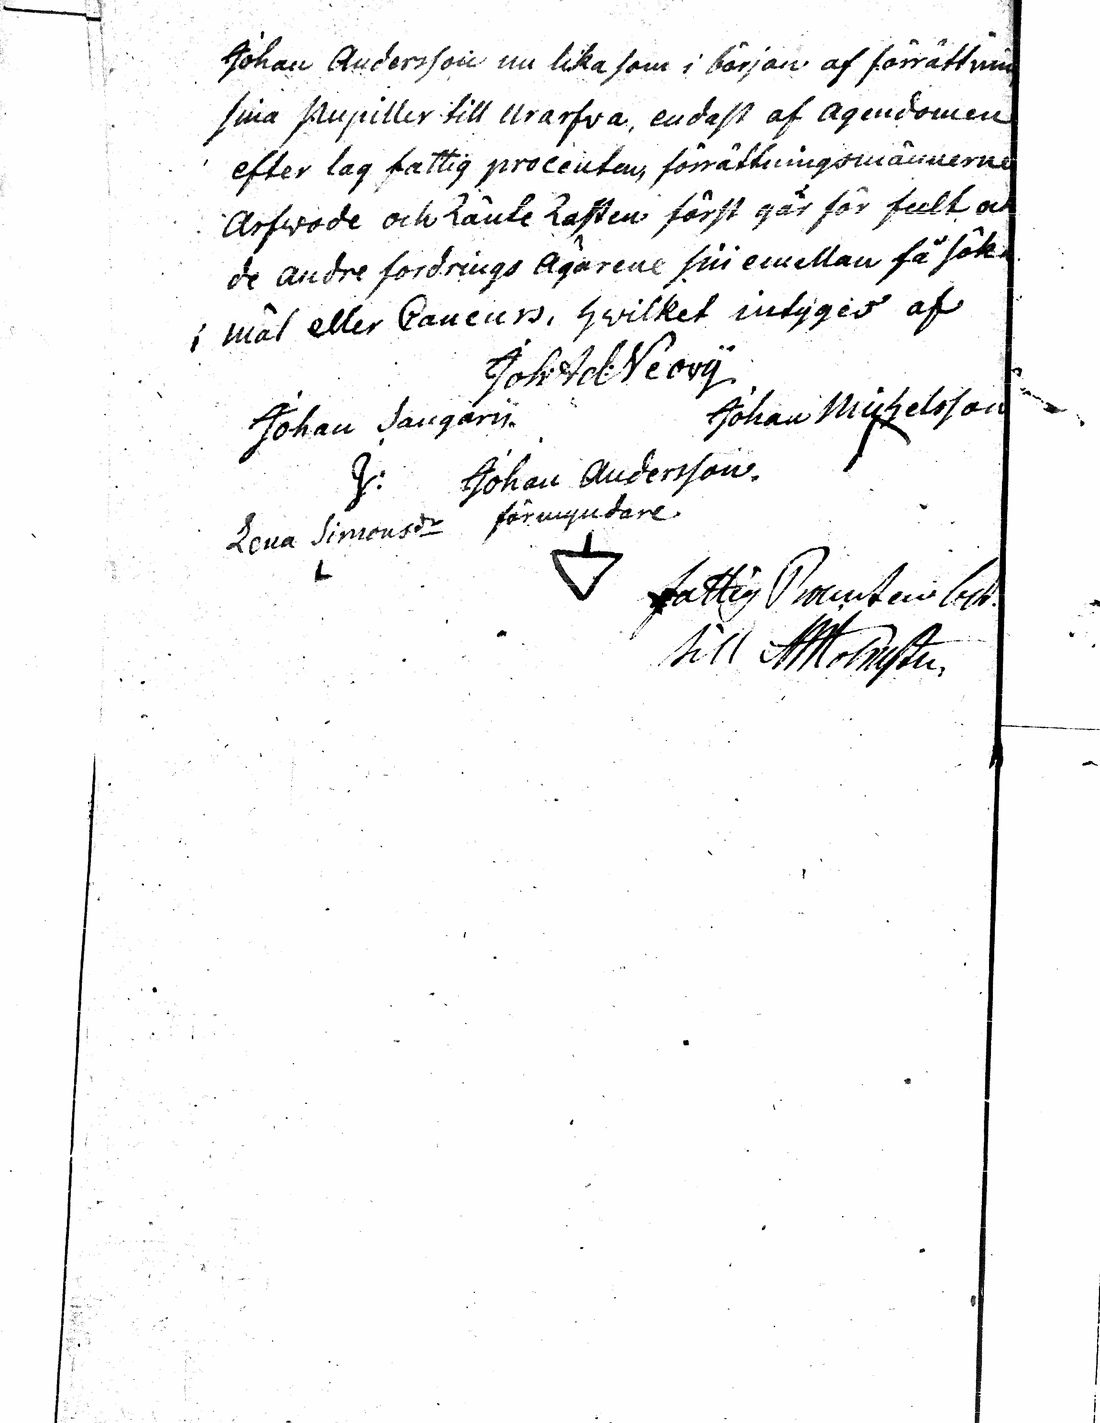 Johan Andersson nu lika som i början af förrättning
sina Pupiller till Urarfva, endast af Ägendomen
efter lag fattig procenten, förrättningsmännerne
Arfwode och Länte Lasten först går för fult och
de andre fordrings Ägarene sin emellan få sök
mål eller Concurs, hwilket intyges af
Joh: Ad: Neovÿ
Johan Sangarÿ Johan Michelsson
Johan Andersson.
Lena Simonsdr förmyndare.
fattig Procenten bet.
till